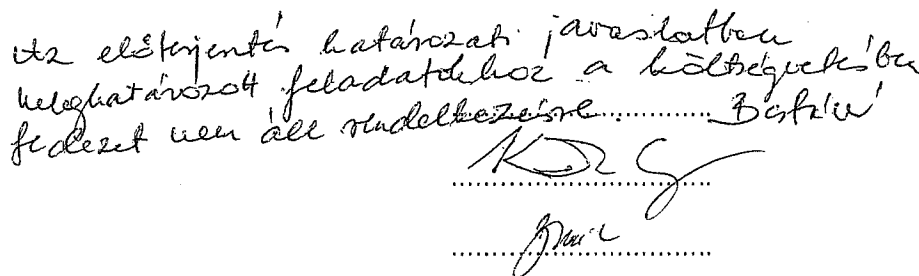 Az előterjentés határozati javaslatban
meghatározott feladatokhoz a költségvetésben
fedezet nem áll rendelkezésre.